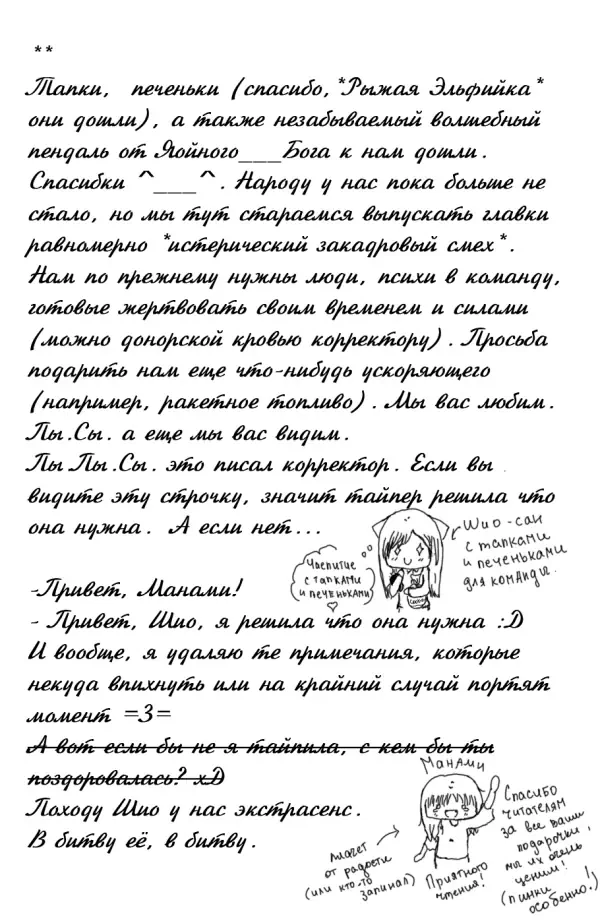 **
Тапки, печеньки (спасибо,*Рыжая Эльфийка*
они дошли), а также незабываемый волшебный
пендаль от Яойного___Бога к нам дошли.
Спасибки ^___^. Народу у нас пока больше не
стало, но мы тут стараемся выпускать главки
равномерно *истерический закадровый смех*.
Нам по прежнему нужны люди, психи в команду,
готовые жертвовать своим временем и силами
(можно донорской кровью корректору). Просьба
подарить нам еще что-нибудь ускоряющего
(например, ракетное топливо). Мы вас любим.
Пы.Сы. а еще мы вас видим.
Пы.Пы.Сы. это писал корректор. Если вы
видите эту строчку, значит тайпер решила что
она нужна. А если нет...
Шио-сан
с тапками
и печеньками
для команды.
Чаепитие
с тапками
и печеньками
-Привет, Манами!
- Привет, Шио, я решила что она нужна :D
И вообще, я удаляю те примечания, которые
некуда впихнуть или на крайний случай портят
момент =3=
А вот если бы не я тайпила, с кем бы ты
поздоровалась? xD
Походу Шио у нас экстрасенс.
В битву её, в битву.
Манами
лиает
от радости
(или кто-то
запинал)
Приятного
чтения!
Спасибо
читателям
за все ваши
подарочки,
мы их очень
ценим!
(пинки
особенно!)